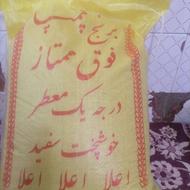 برنج چمپا
فوق ممتاز
درجه یک معطر
خوشپخت سفید
اعلا اعلا اعلا